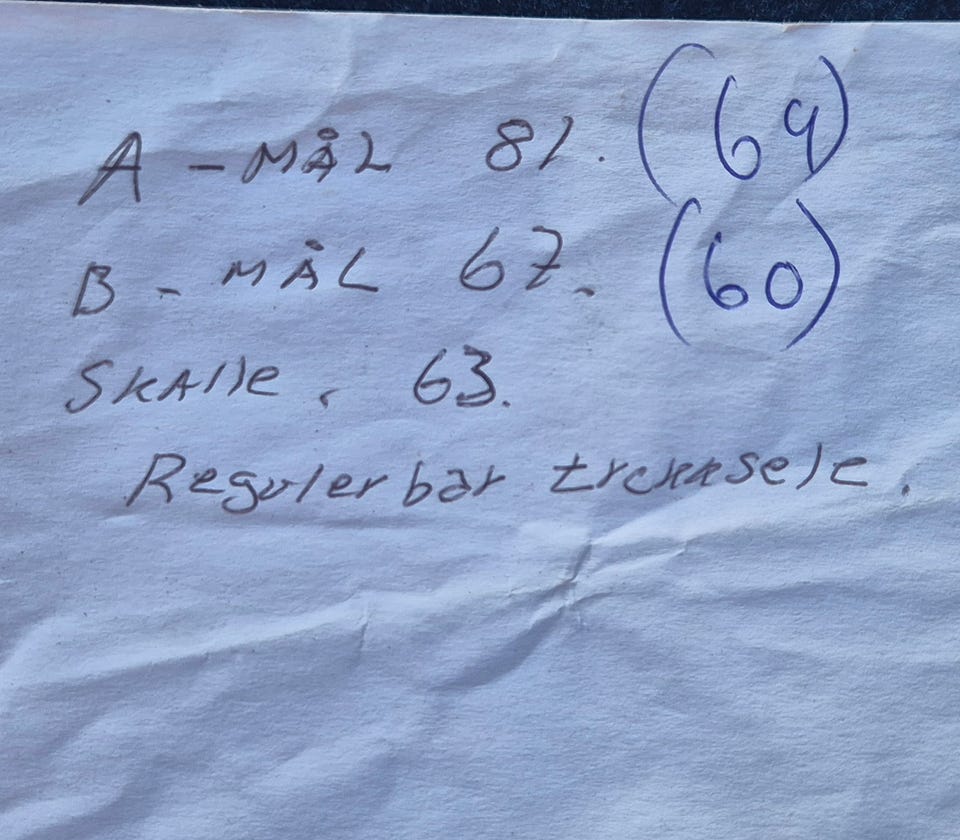 A - MÅL 81. (69)
B - MÅL 67. (60)
SKAlle. 63.
Regulerbar trekksele.